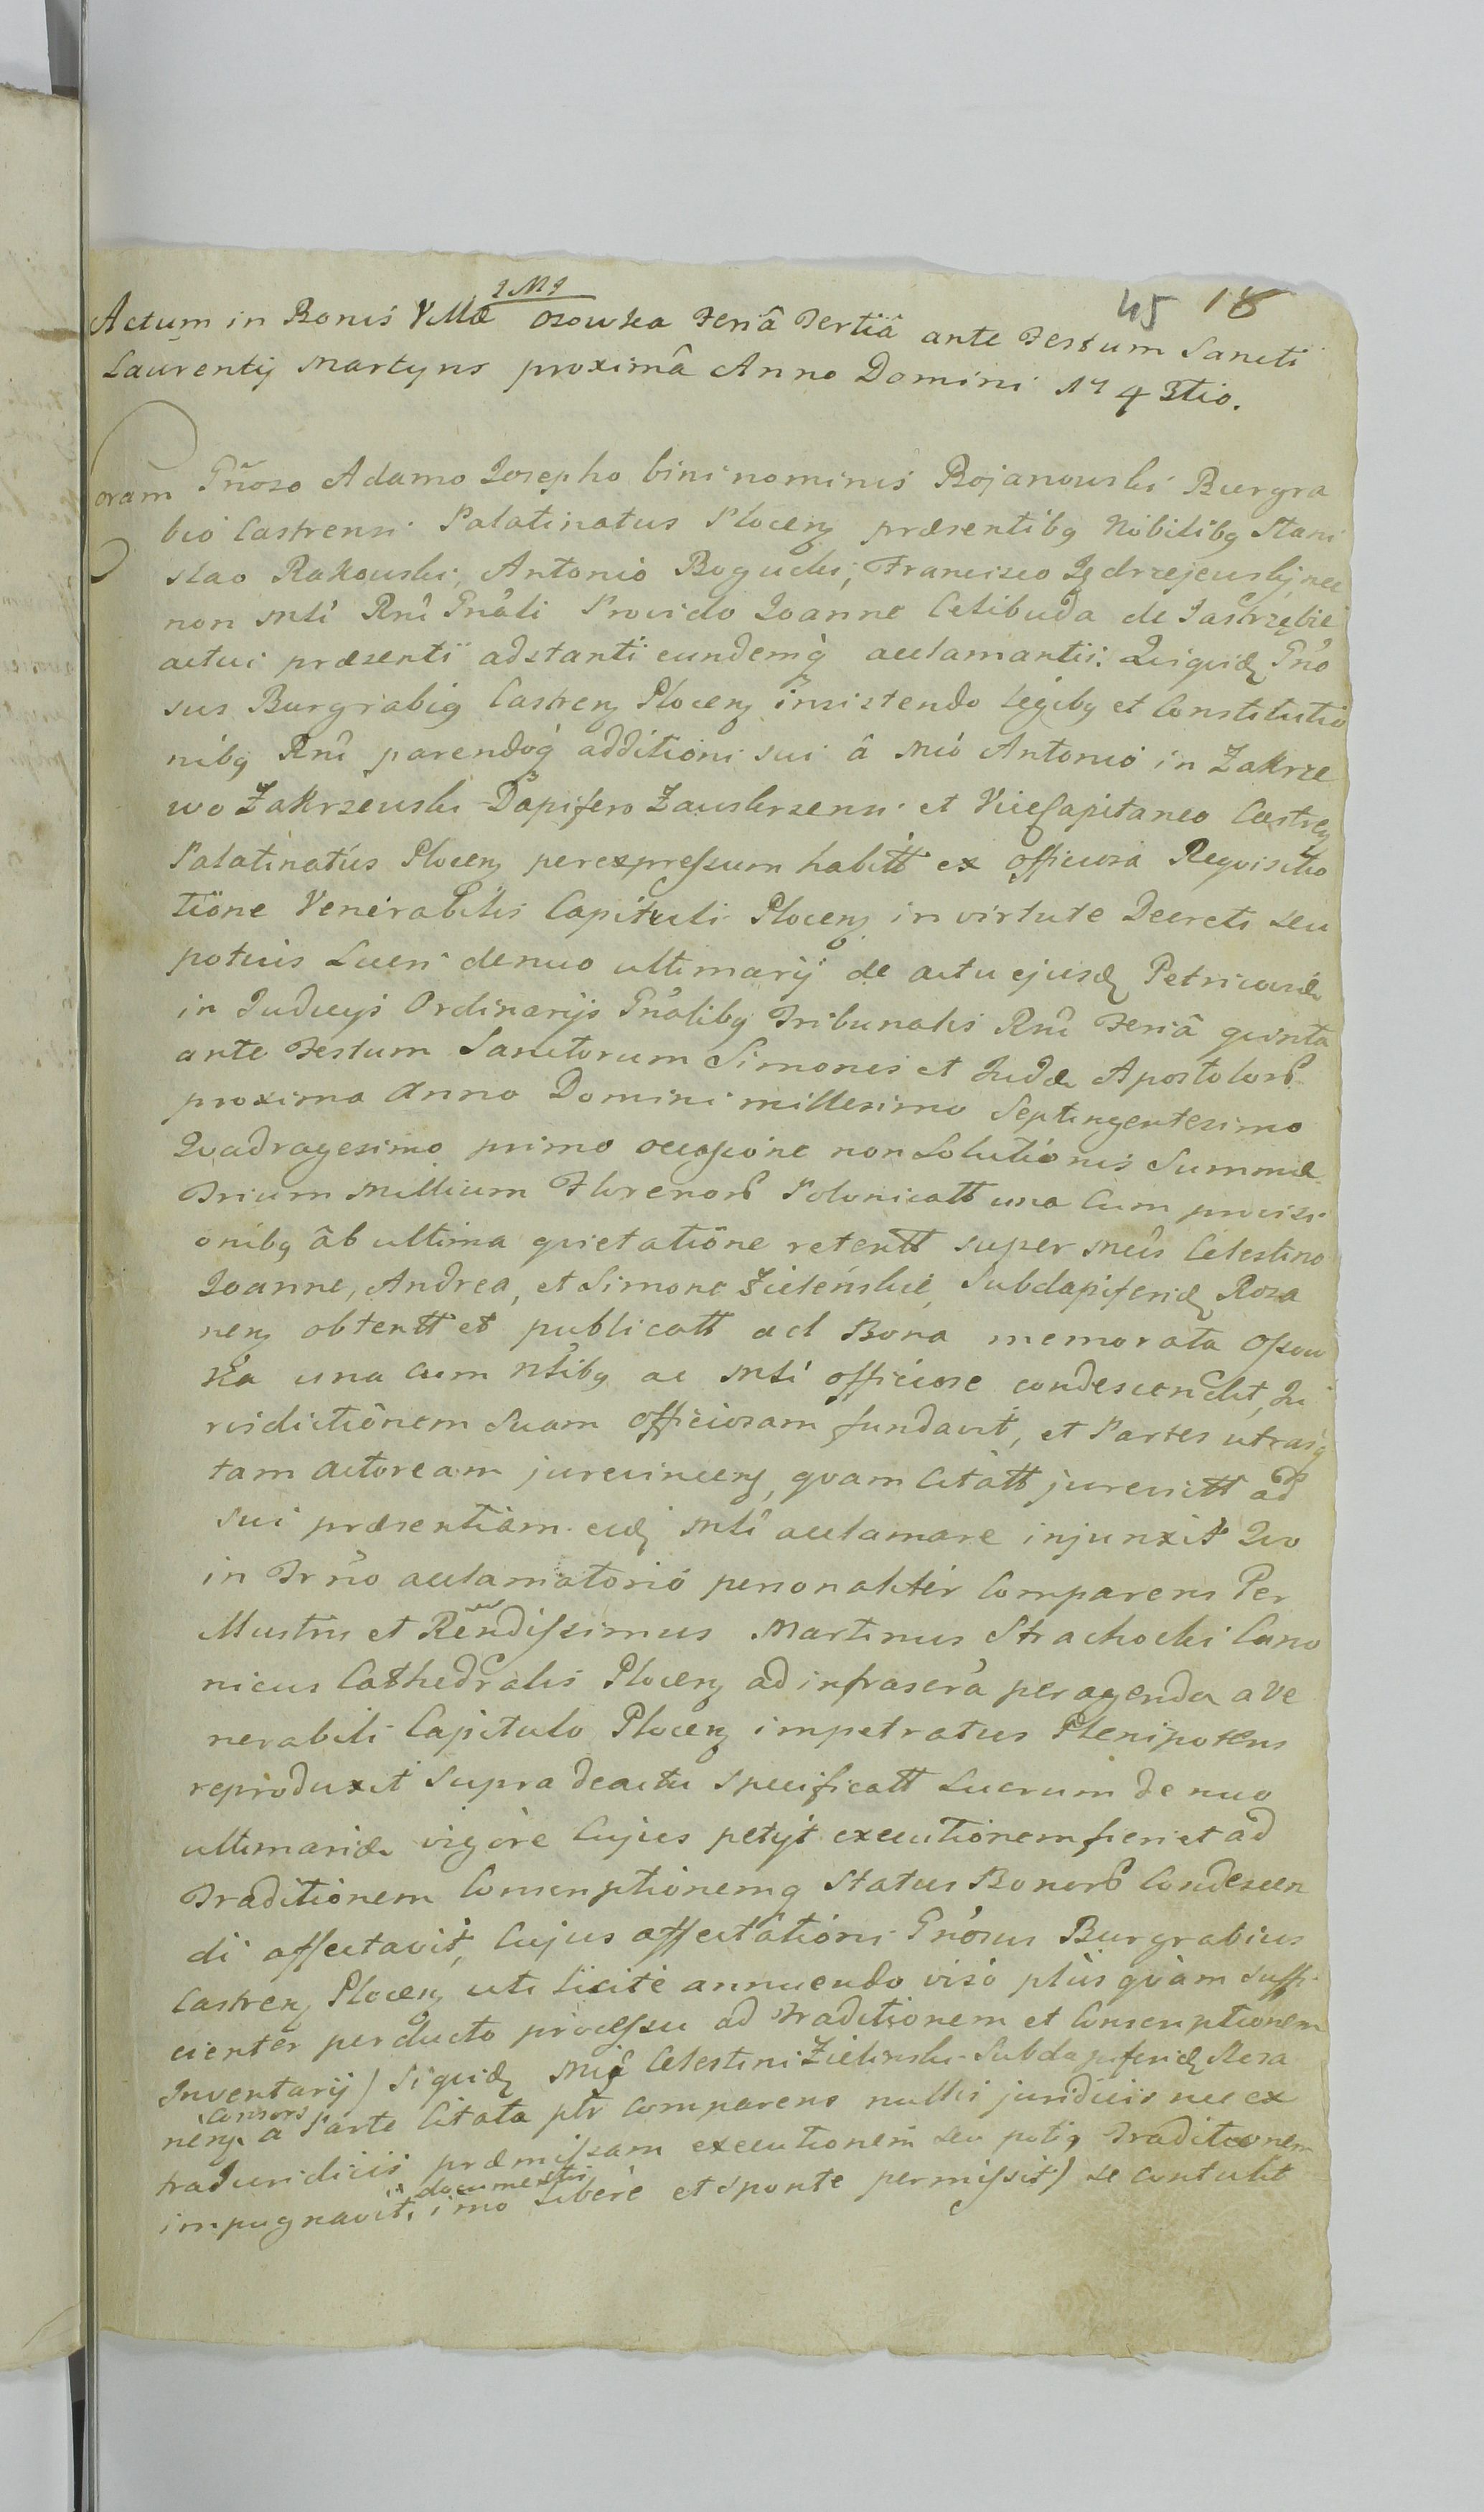 IMI
45 18
Actum in Bonis Villæ Osowka Feriâ Tertiâ ante Festum Sancti
Laurentij Martyris proximâ Anno Domini 1743tio.
Coram Gñoso Adamo Josepho bini nominis Bojanowski Burgra
bio Castrensi Palatinatus Plocen̄ præsentibg Nobilibg Stani
slao Rakowski, Antonio Bogucki, Francisco Jędrzejewskij, nec
non Mlî Rnî Gnâli Provido Joanne Celibuda de Jastrzębie
actui præsenti adstanti eundemq̀ acclamanti. Quiquidę Gno
sus Burgrabig Castren̄ Plocen̄ insistendo Legibg et Constitutio
nibg Rnî parendoq̀ additioni sui â Mcó Antonio in Zakrze
wo Zakrzewski Dapifero Zawskrzensi et ViceCapitaneo Castren̄
Palatinatus Plocen̄ per expressum habitt ex officiosa Requisitio
tione Venerabilis Capituli Plocen̄ in virtute Decreti seu
potius Lucri denuo ultimarij de actu ejusdę Petricoviæ
in Judicijs Ordinarijs Gnâlibg Tribunalis Rnî Feriâ quinta
ante Festum Sanctorum Simonis et Judæ Apostolorũ
proxima Anno Domini millesimo Septingentesimo
Quadragesimo primo occasione non Solutionis Summæ
Trium Millium Florenorũ Polonicatt una Cum provisi
onibg âb ultima quietatione retentt super Mcîs Celestino
Joanne, Andrea, et Simone Zieleńskie, Subdapiferidę Roza
nen̄ obtentt et publicatt ad Bona memorata Ossow
ka una cum Nlibg ac Mlî officiose condescendit, Ju
risdictionem Suam Officiosam fundavit, et Partes utrasq̀
tam actoream jurevincen̄, quam Citatt jurevictt ad
sui præsentiam eidę Mlî acclamare injunxit Quo
in Trno acclamatorio personaliter Comparens Per
Illustris et Rendissimus Martinus Strachocki Cano
nicus Cathedralis Plocen̄ ad infrascra peragenda a Ve
nerabili Capitulo Plocen̄ impetratus Plenipotens
reproduxit Supra de actu specificatt Lucrum denuo
ultimariæ vigore Cujus petijt executionem fieri et ad
Traditionem Conscriptionemq Status Bonorũ Condescen
di affectavit, Cujus affectationi Gnosus Burgrabius
Castren̄ Plocen̄ uti licite annuendo viso plus quàm suffi
cienter perducto processu ad Traditionem et Conscriptionem
Inventarij) siquidę Mci Celestini Zielinski Subdapiferidę Roza
nen̄ consors a Parte Citata ptr comparens nullis juridicis nec ex
trajuridicis præmissam executionem seu potig Traditionem
impugnavit documentis imo libere et sponte permissit) se contulit